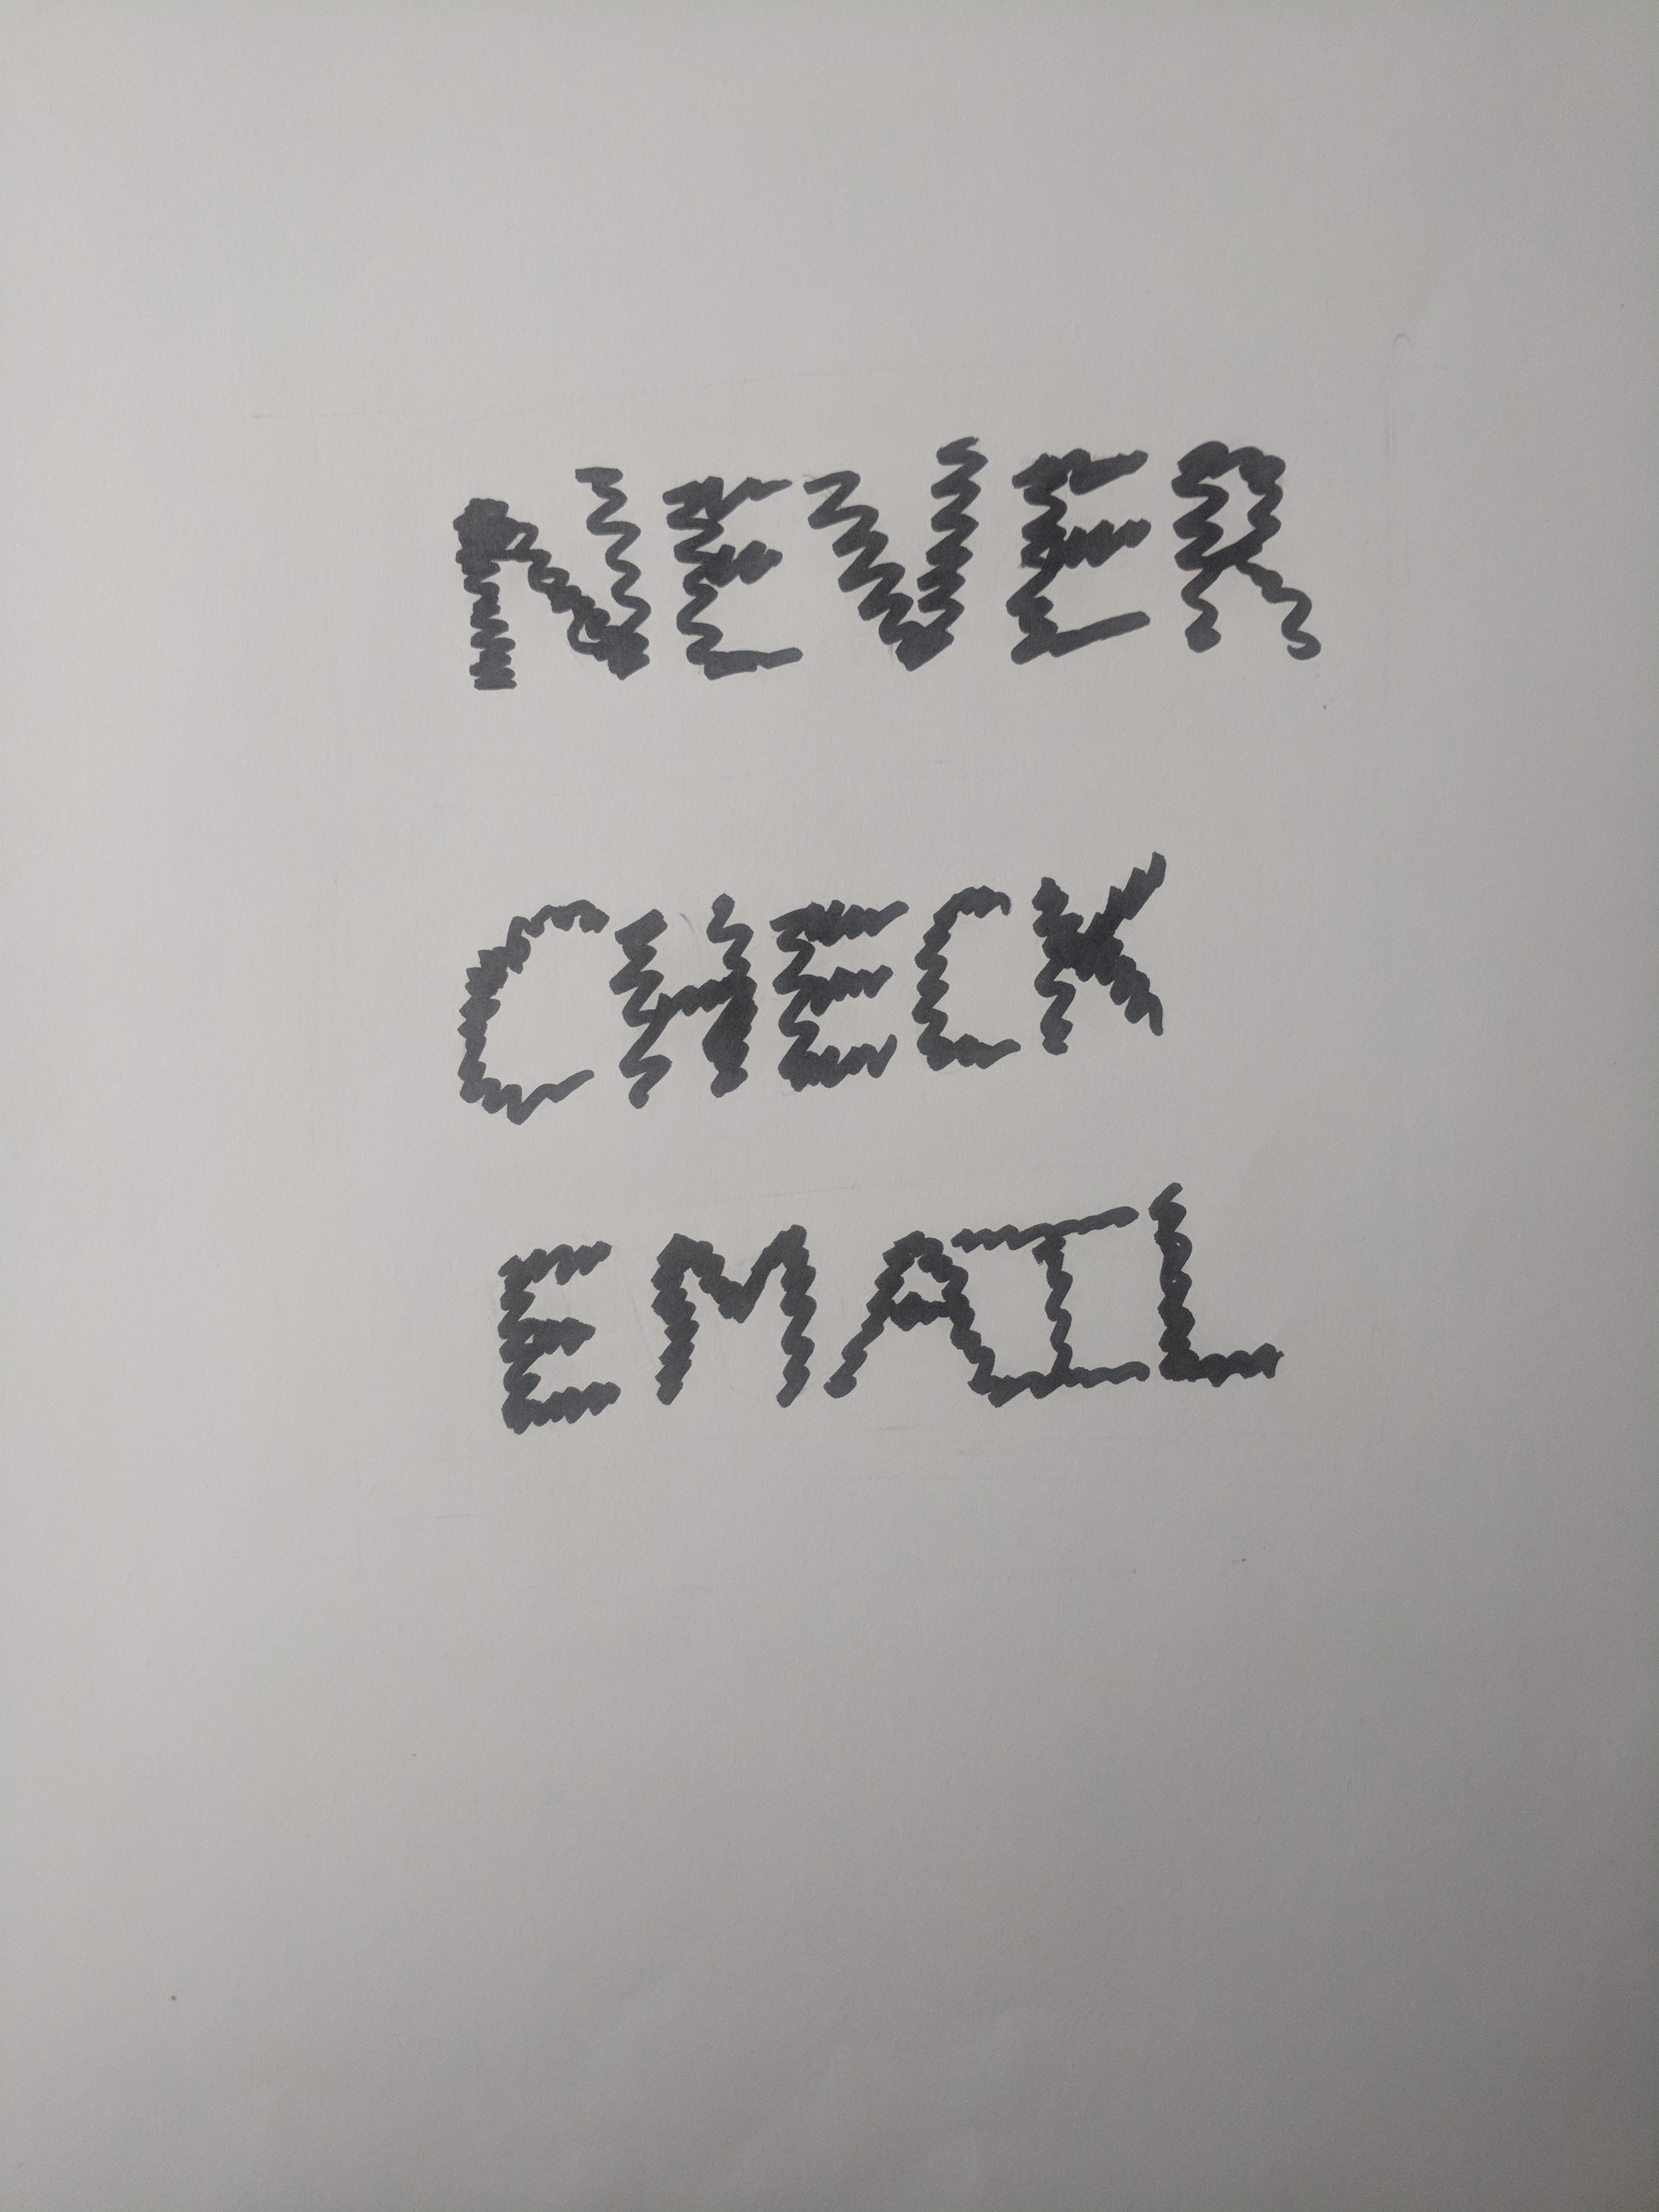 NEVER
CHECK
EMAIL